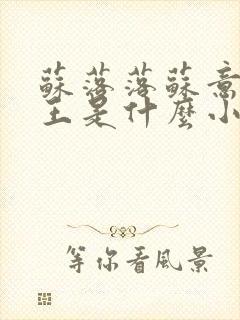 蘇落落蘇意
王是什麼小
等你看風景